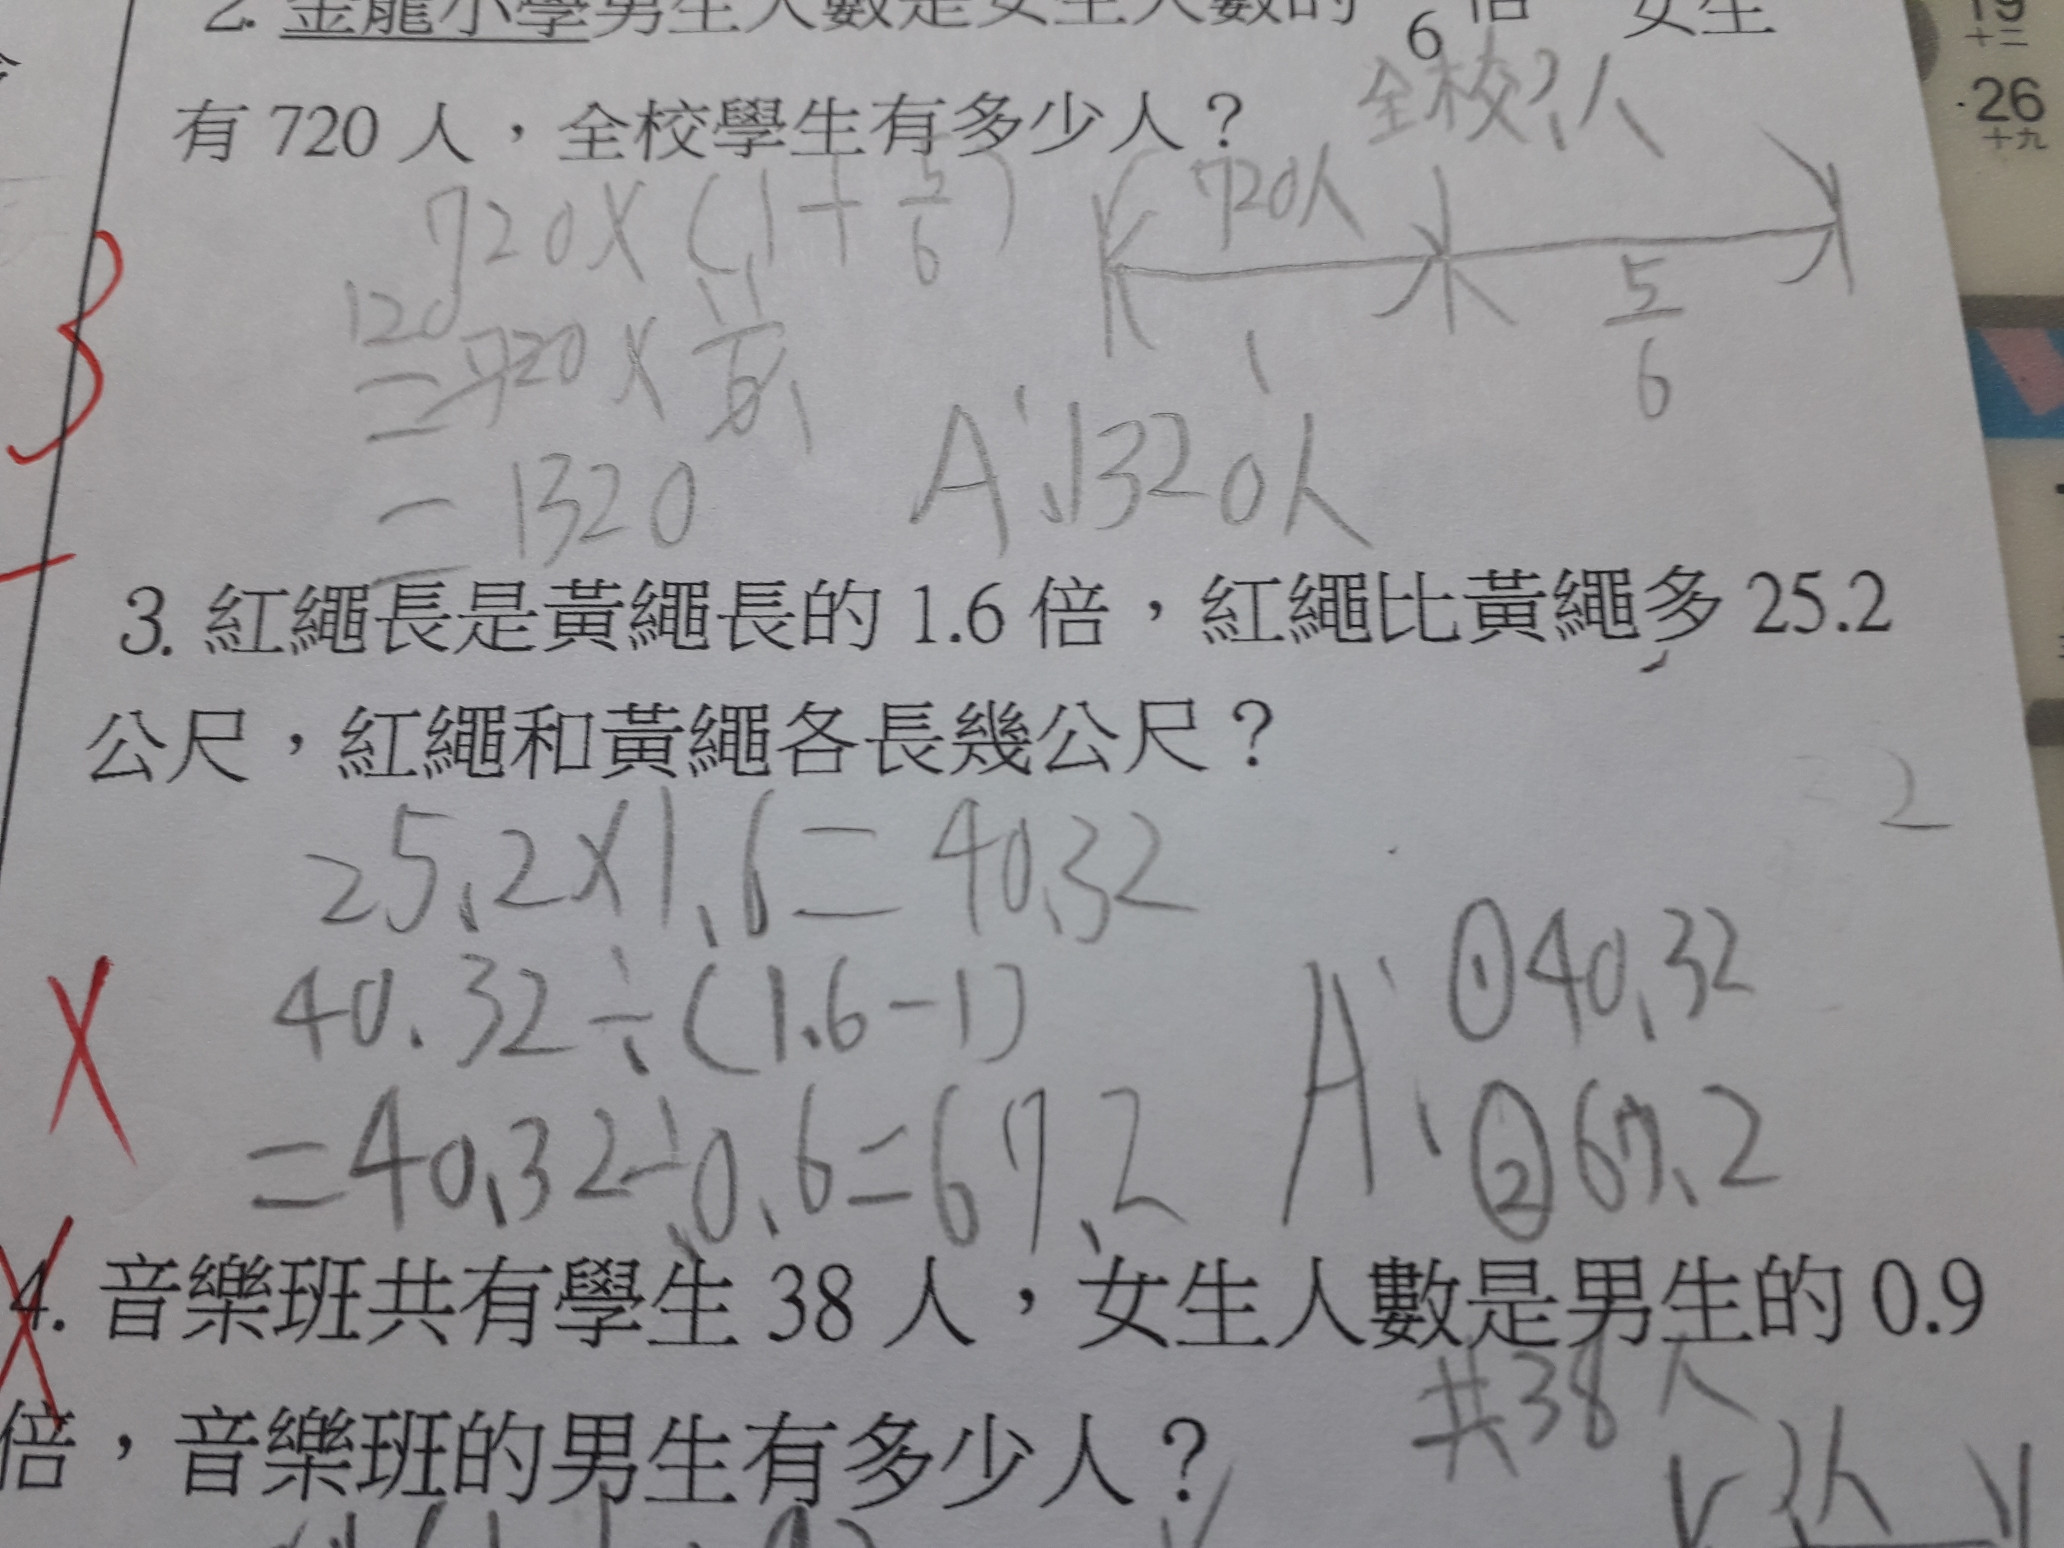 2. 金龍小學男生人數是女生人數的 6 倍 女生
有 720 人，全校學生有多少人？
全校?人
720×(1+5/6)
720人
120
=720×11/6
1
1
5/6
=1320
A:1320人
3. 紅繩長是黃繩長的 1.6 倍，紅繩比黃繩多 25.2
公尺，紅繩和黃繩各長幾公尺？
25.2×1.6=40.32
40.32÷(1.6-1)
=40.32÷0.6=67.2
A:①40.32
②67.2
4. 音樂班共有學生 38 人，女生人數是男生的 0.9
共38人
倍，音樂班的男生有多少人？
?人
3
2
19
十二
26
十九